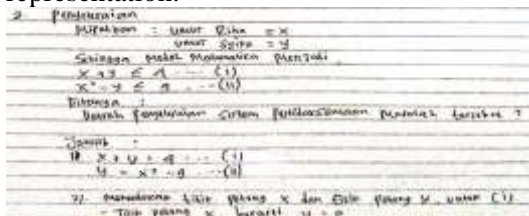 representation.
2 Penyelesaian
Misalkan : umur Rika = x
umur Syifa = y
Sehingga model Matematika menjadi
x + y ≤ 4 ... (i)
x² - y ≤ 9 ... (ii)
Ditanya :
Daerah Penyelesaian sistem Pertidaksamaan tersebut ?
Jawab :
x + y = 4 ... (i)
y = x² - 9 ... (ii)
titik potong x dan titik potong y untuk (i)
- Titik potong x berarti y = 0